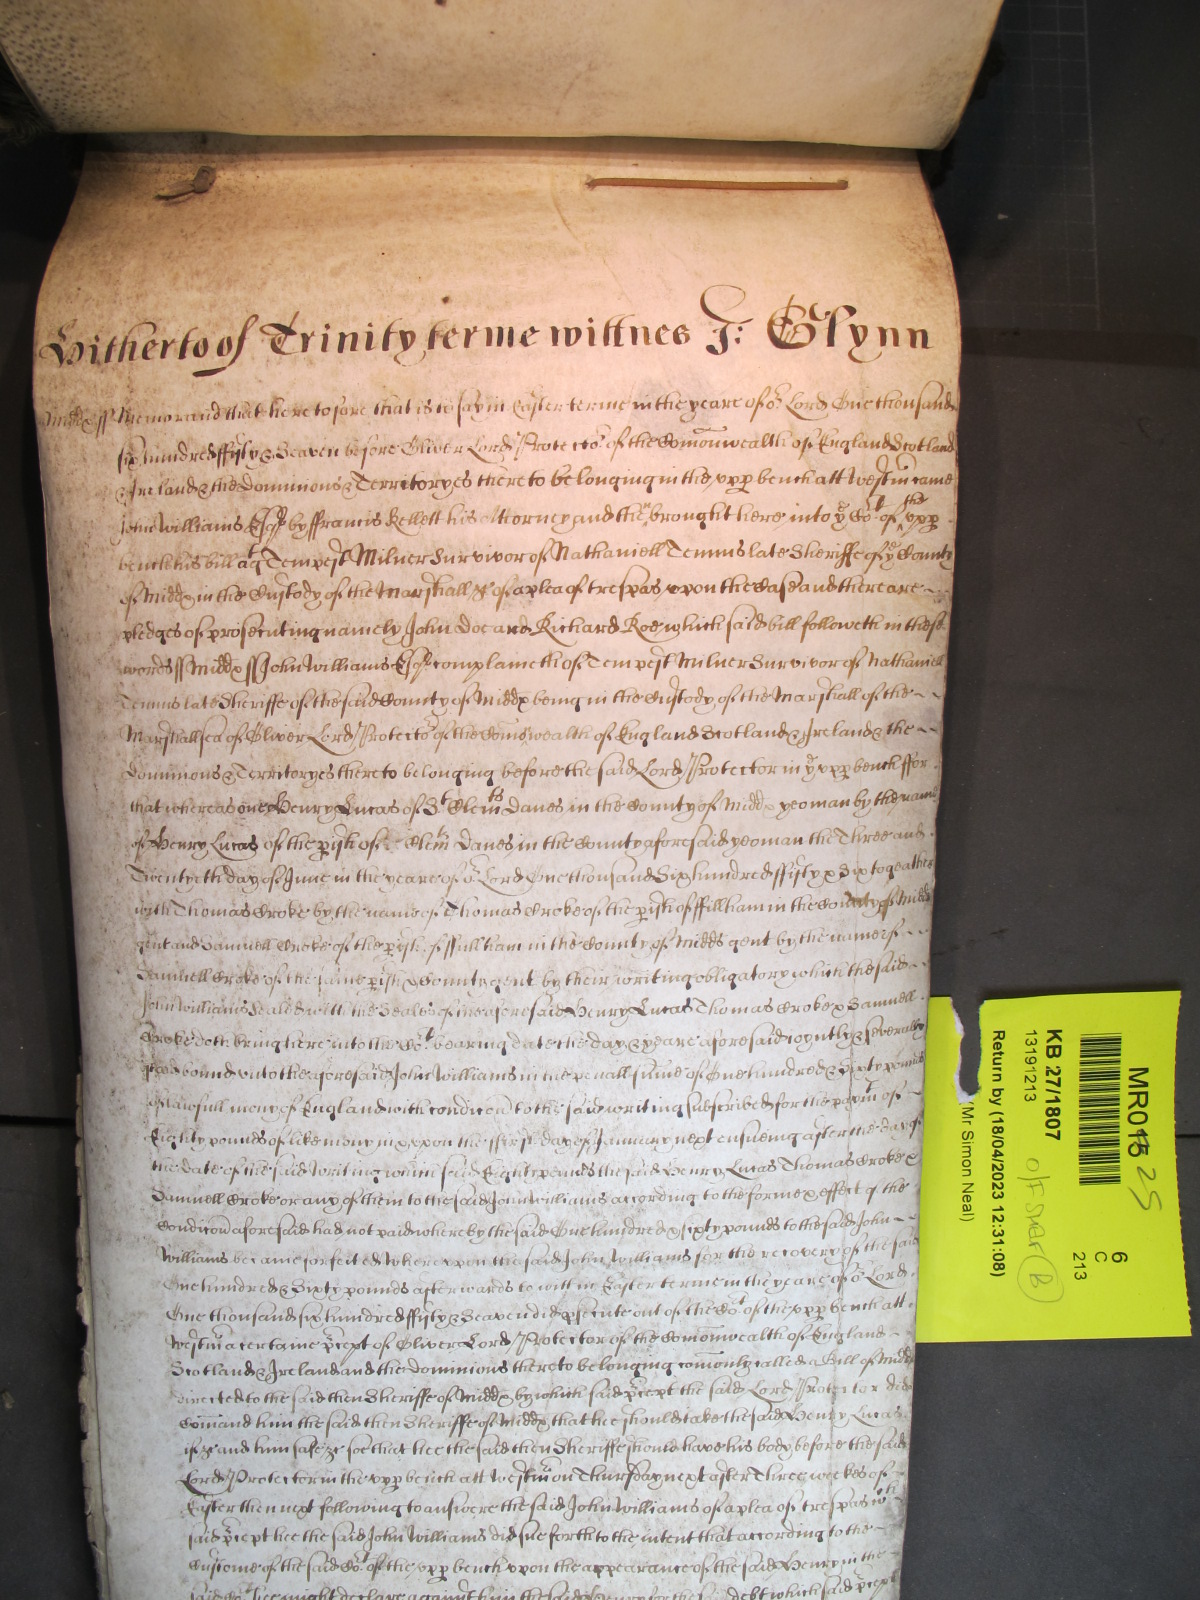 Hitherto of Trinity terme wittnes J: Glynn
Midd ss Memorand that heretofore that is to say in Easter terme in the yeare of or Lord One thousand
six hundred ffifty & Seaven before Oliver Lord Protector of the Comonwealth of England Scotland
& Ireland & the Dominions & Territoryes thereto belonging in the upp bench att Westm came
John Williams Esqr by ffrancis Kellett his Attorney and then brought here into ye Cot of the upp
bench his bill agt Tempest Milner Survivor of Nathaniell Temms late Sheriffe of ye County
of Midd in the Custody of the Marshall &c of a plea of trespas upon the Case and there are
pledges of prosecuting namely John Doe and Richard Roe which said bill followeth in these
words ss Midd ss John Williams Esqr complaineth of Tempest Milner Survivor of Nathaniell
Temms late Sheriffe of the said County of Midd being in the Custody of the Marshall of the
Marshallsea of Oliver Lord Protector of the Comonwealth of England Scotland & Ireland & the
Dominions & Territoryes thereto belonging before the said Lord Protector in ye upp bench ffor
that whereas one Henry Lucas of St Clemts Danes in the County of Midd yeoman by the name
of Henry Lucas of the pish of Clemt Danes in the County aforesaid yeoman the Three and
Twentyeth day of June in the yeare of or Lord One thousand Six hundred ffifty & Six togeather
with Thomas Croke by the name of Thomas Croke of the pish of ffullham in the County of Midd
gent and Samuell Croke of the pish of ffullham in the County of Midd gent by the name of
Samuell Croke of the same pish & County gent by their writing obligatory which the said
John Williams sealed with the Seales of the aforesaid Henry Lucas Thomas Croke & Samuell
Croke doth bring here into the Cot bearing date the day & yeare aforesaid joyntly & severally
bound unto the aforesaid John Williams in the penall sume of One hundred & sixty pounds
of lawfull mony of England with condicon to the said writing subscribed for the paymt of
Eighty pounds of like mony in & upon the ffirst day of January next ensueing after the day of
the date of the said writing which said Eighty pounds the said Henry Lucas Thomas Croke &
Samuell Croke or any of them to the said John Williams according to the forme & effect of the
Condicon aforesaid had not paid whereby the said One hundred & sixty pounds to the said John
Williams became forfeited whereupon the said John Williams for the recovery of the said
One hundred & Sixty pounds afterwards to witt in Easter terme in the yeare of or Lord
One thousand six hundred ffifty & Seaven did psecute out of the Cot of the upp bench att
Westm a certaine pcept of Oliver Lord Protector of the Comonwealth of England
Scotland & Ireland and the Dominions thereto belonging comonly called a Bill of Midd
directed to the said then Sheriffe of Midd by which said pcept the said Lord Protector did
Comand him the said then Sheriffe of Midd that hee should take the said Henry Lucas
if &c and him safe &c soe that hee the said then Sheriffe should have his body before the said
Lord Protector in the upp bench att Westm on Thursday next after Three weekes of
Easter then next following to answere the said John Williams of a plea of trespas wch
said pcept hee the said John Williams did sue forth to the intent that according to the
Custome of the said Cot of the upp bench upon the appearance of the said Henry in the
said Cot hee might declare against him the said Henry for the said debt which said pcept
MR015
25
6
C
213
KB 27/1807
13191213
Return by (18/04/2023 12:31:08)
(Mr Simon Neal)